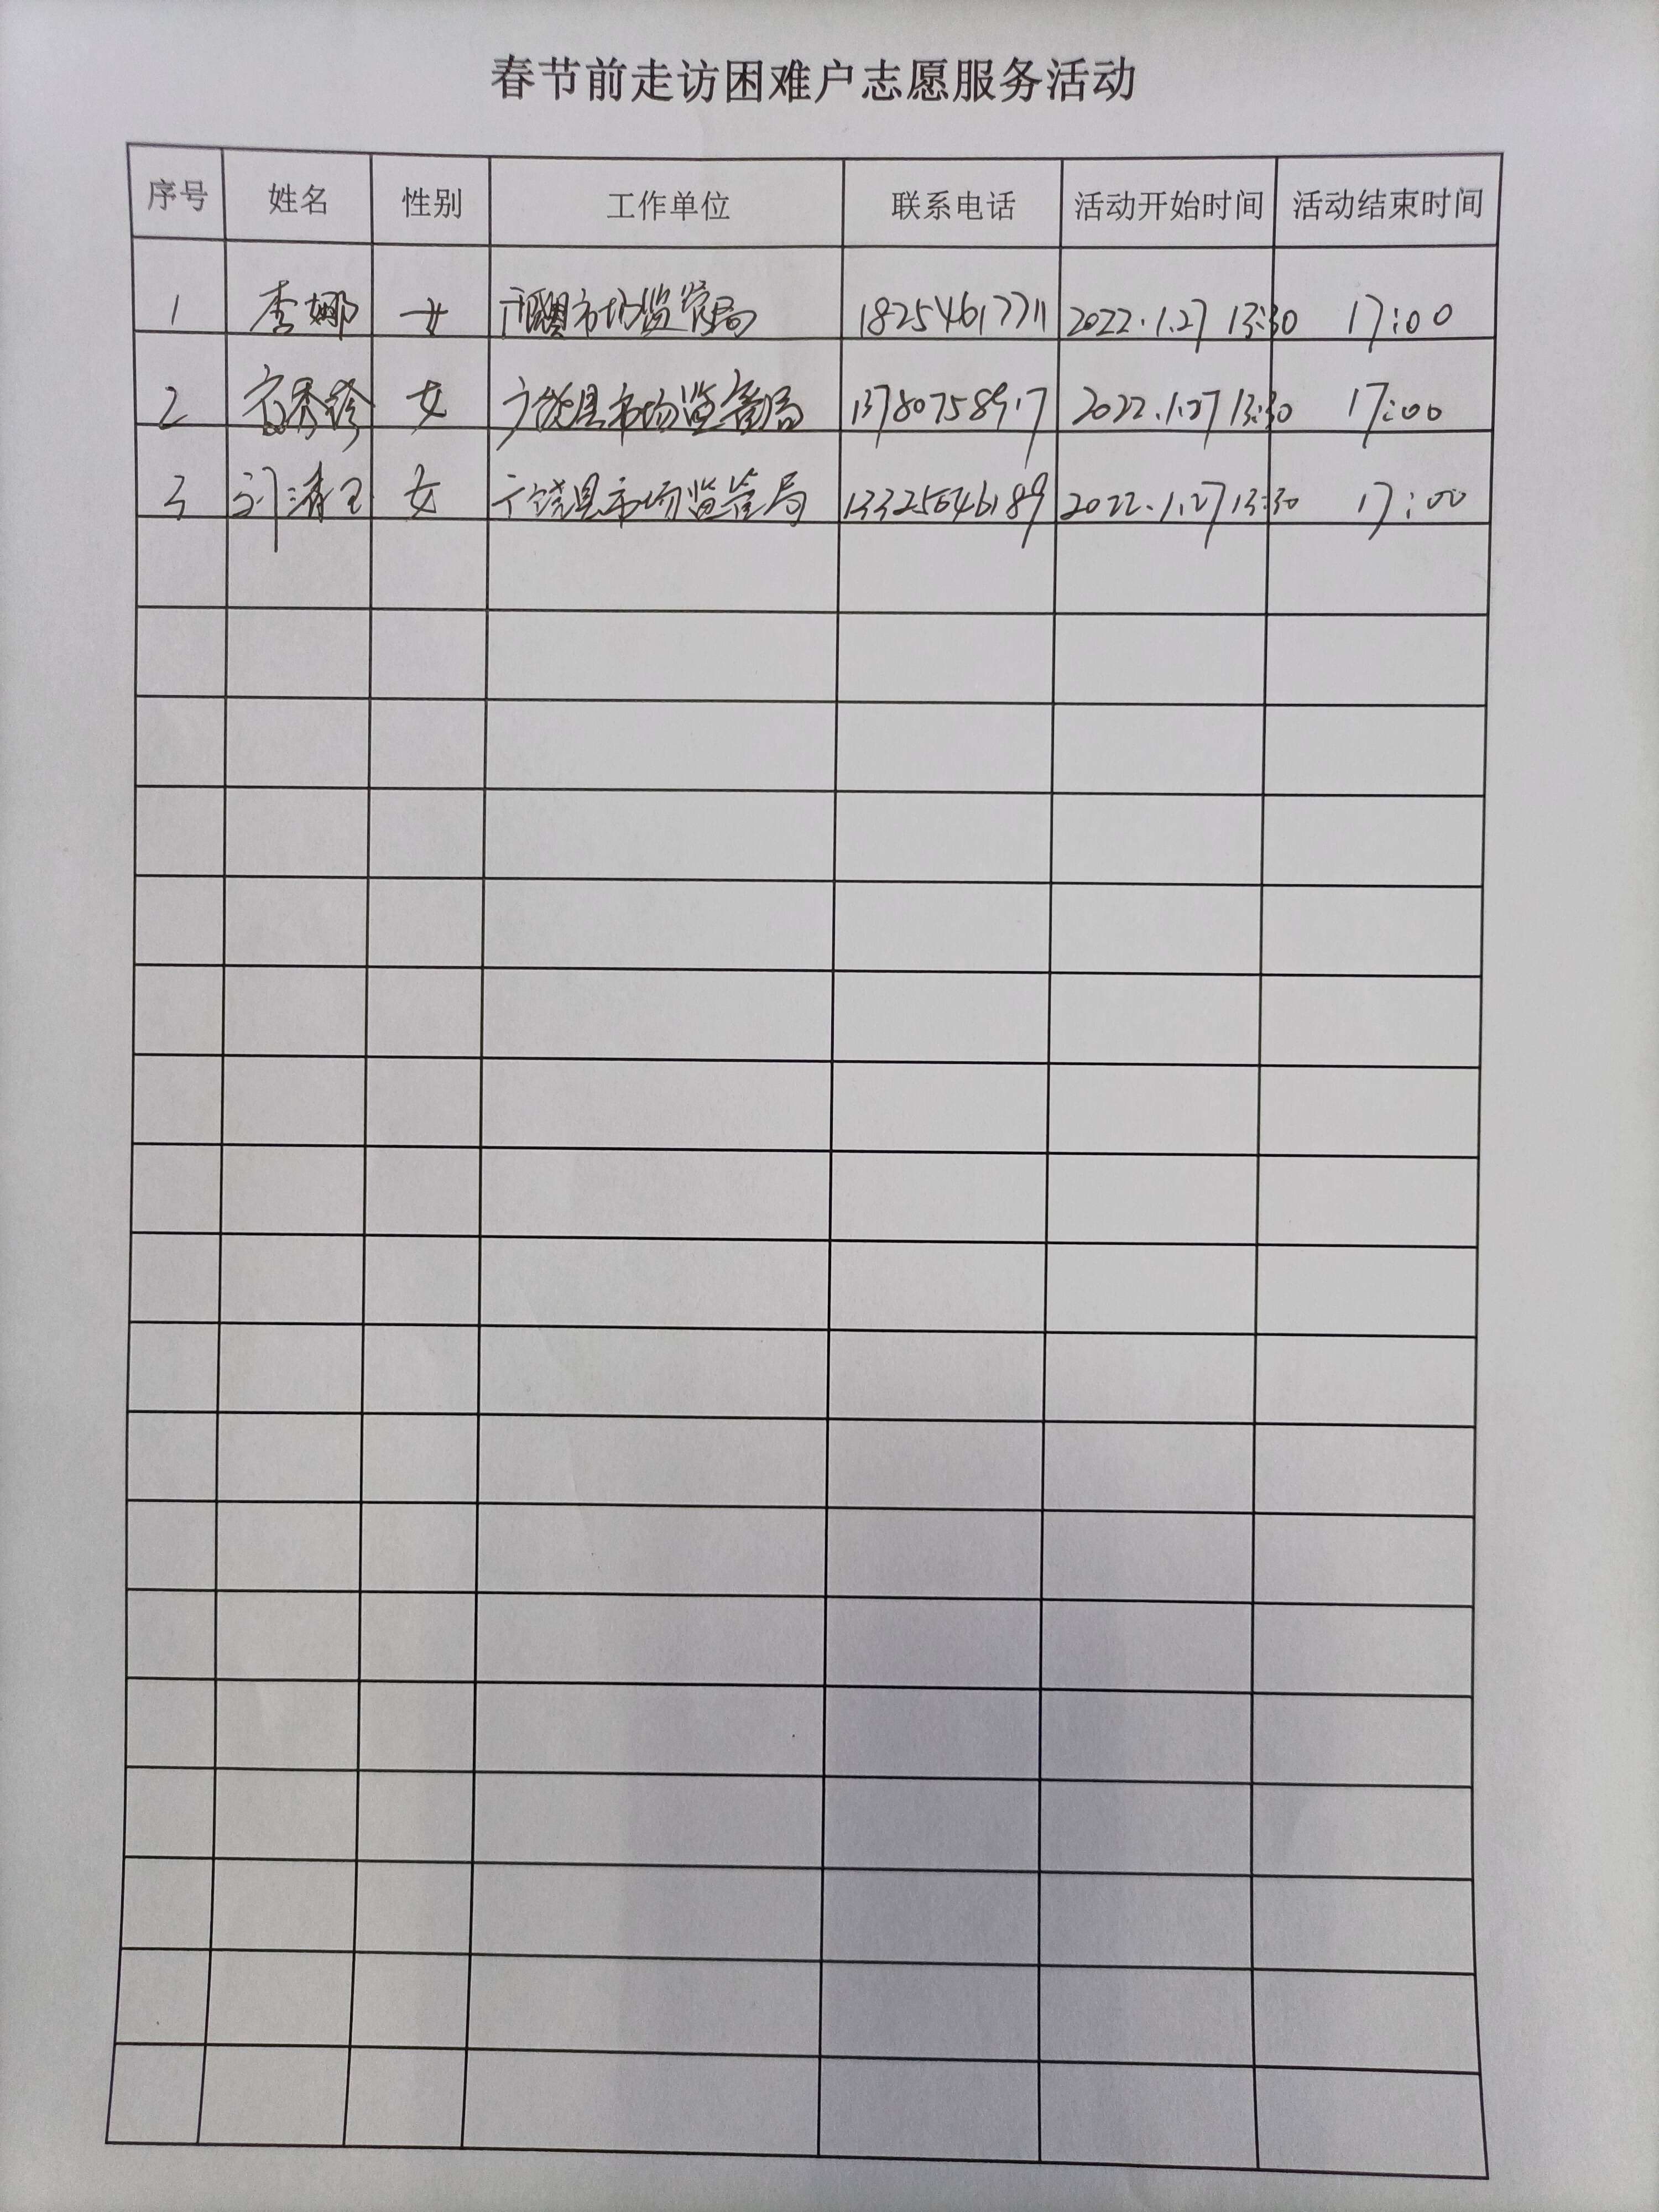 春节前走访困难户志愿服务活动
序号 姓名 性别 工作单位 联系电话 活动开始时间 活动结束时间
1 李娜 女 广饶县市场监管局 18254617711 2022.1.27 13:30 17:00
2 女 广饶县市场监督局 2022.1.27 13:30 17:00
3 刘清 女 广饶县市场监管局 13325646189 2022.1.27 13:30 17:00